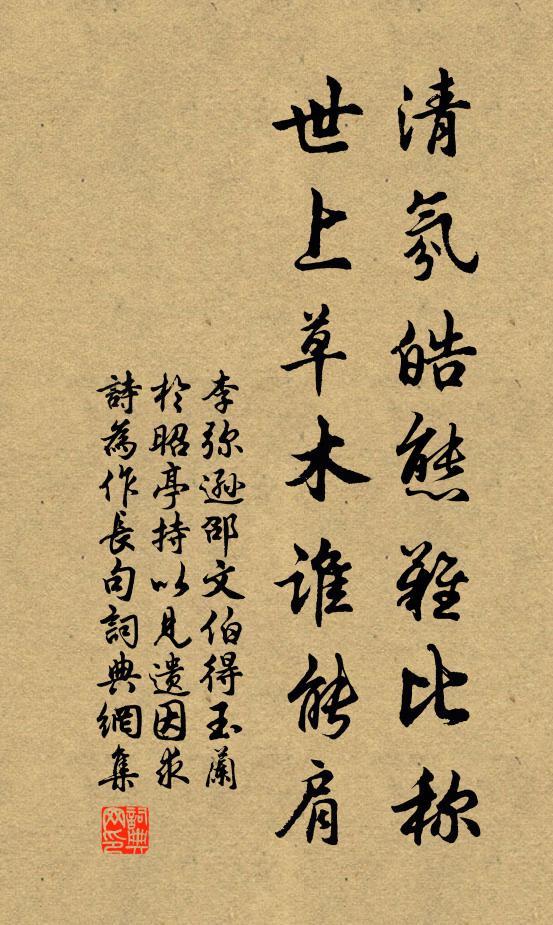 清氛皓態難比称
世上草木誰能肩
李弥遜邵文伯得玉蘭
於昭亭持以見遺因求
詩為作長句詞典網集
詞典網印